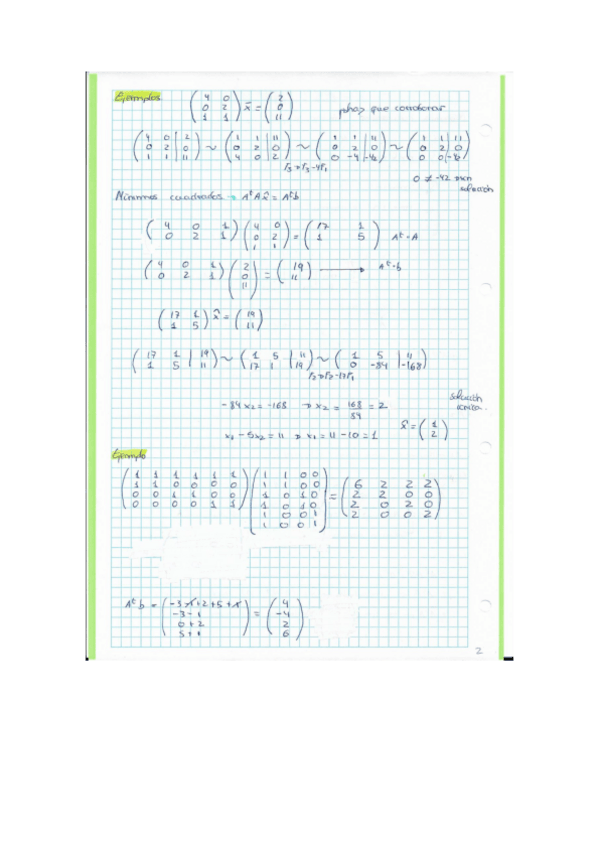 Ejemplos
( 4 0 ; 0 2 ; 1 1 ) x̂ = ( 2 ; 0 ; 11 ) que corroborar
( 4 0 | 2 ; 0 2 | 0 ; 1 1 | 11 ) ~ ( 1 1 | 11 ; 0 2 | 0 ; 4 0 | 2 ) ~ ( 1 1 | 11 ; 0 2 | 0 ; 0 -4 | -42 ) ~ ( 1 1 | 11 ; 0 2 | 0 ; 0 0 | -42 )
r₃ → r₃ - 4r₁
0 ≠ -42 solución
Mínimos cuadrados → AᵗA x̂ = Aᵗb
( 4 0 1 ; 0 2 1 ) ( 4 0 ; 0 2 ; 1 1 ) = ( 17 1 ; 1 5 ) Aᵗ·A
( 4 0 1 ; 0 2 1 ) ( 2 ; 0 ; 11 ) = ( 19 ; 11 ) → Aᵗ·b
( 17 1 ; 1 5 ) x̂ = ( 19 ; 11 )
( 17 1 | 19 ; 1 5 | 11 ) ~ ( 1 5 | 11 ; 17 1 | 19 ) ~ ( 1 5 | 11 ; 0 -84 | -168 )
r₂ → r₂ - 17r₁
-84x₂ = -168 → x₂ = 168/84 = 2
solución única..
x₁ - 5x₂ = 11 → x₁ = 11 - 10 = 1 x̂ = ( 1 ; 2 )
Ejemplo
( 1 1 1 1 1 1 ; 1 1 0 0 0 0 ; 0 0 1 1 0 0 ; 0 0 0 0 1 1 ) ( 1 1 0 0 ; 1 1 0 0 ; 1 0 1 0 ; 1 0 1 0 ; 1 0 0 1 ; 1 0 0 1 ) = ( 6 2 2 2 ; 2 2 0 0 ; 2 0 2 0 ; 2 0 0 2 )
Aᵗb = ( -3 -1 + 2 + 5 + 1 ; -3 - 1 ; 0 + 2 ; 5 + 1 ) = ( 4 ; -4 ; 2 ; 6 )
2